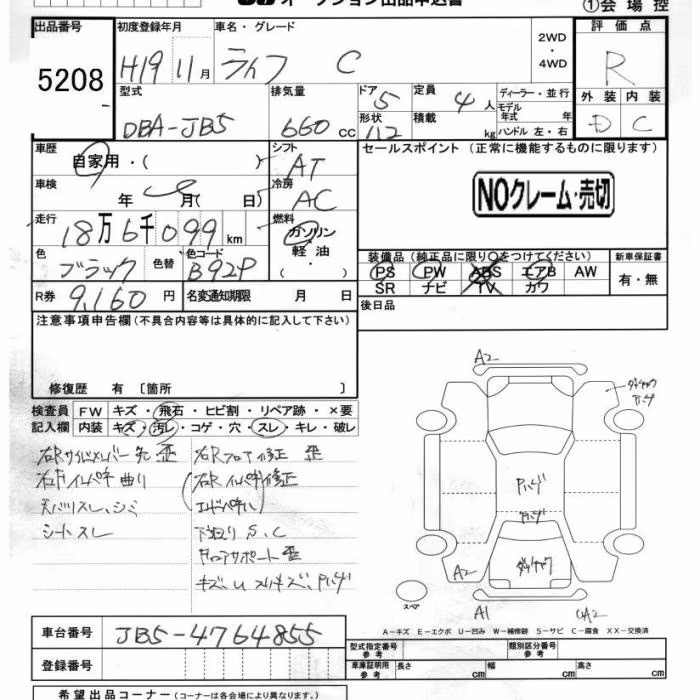 オークション出品申込書
①会場控
出品番号 5208
初度登録年月 H19 11月
車名・グレード ライフ C
2WD・4WD
評価点 R
外装 D 内装 C
型式 DBA-JB5
排気量 660 cc
ドア 5 形状 112
定員 4人 積載 kg
ディーラー・並行
モデル年式 年
ハンドル 左・右
車歴 自家用・( )
シフト AT
セールスポイント (正常に機能するものに限ります)
NOクレーム・売切
車検 年 月( 日)
冷房 AC
走行 18万6千099 km
燃料 ガソリン・軽油・
色 ブラック 色替 色コード B92P
装備品 (純正品に限り○をつけてください)
新車保証書
PS PW ABS エアB AW
有・無
SR ナビ TV カワ
R券 9,160 円 名変通知期限 月 日
後日品
注意事項申告欄 (不具合内容等は具体的に記入して下さい)
修復歴 有 〔箇所 〕
検査員記入欄
FW キズ・飛石・ヒビ割・リペア跡・×要
内装 キズ・汚レ・コゲ・穴・スレ・キレ・破レ
右Rサイドメンバー先 歪
右Rフロア修正 歪
右Rインパネ修正
天バリスレ、シミ
シートスレ
下廻りS、C
A2
A2
A1
スペア
A-キズ E-エクボ U-凹み W-補修跡 S-サビ C-腐食 XX-交換済
車台番号 JB5-4764855
型式指定番号 参考
類別区分番号 参考
登録番号
車庫証明用 参考 長さ cm 幅 cm 高さ cm
希望出品コーナー (コーナーは各会場により異なります。)